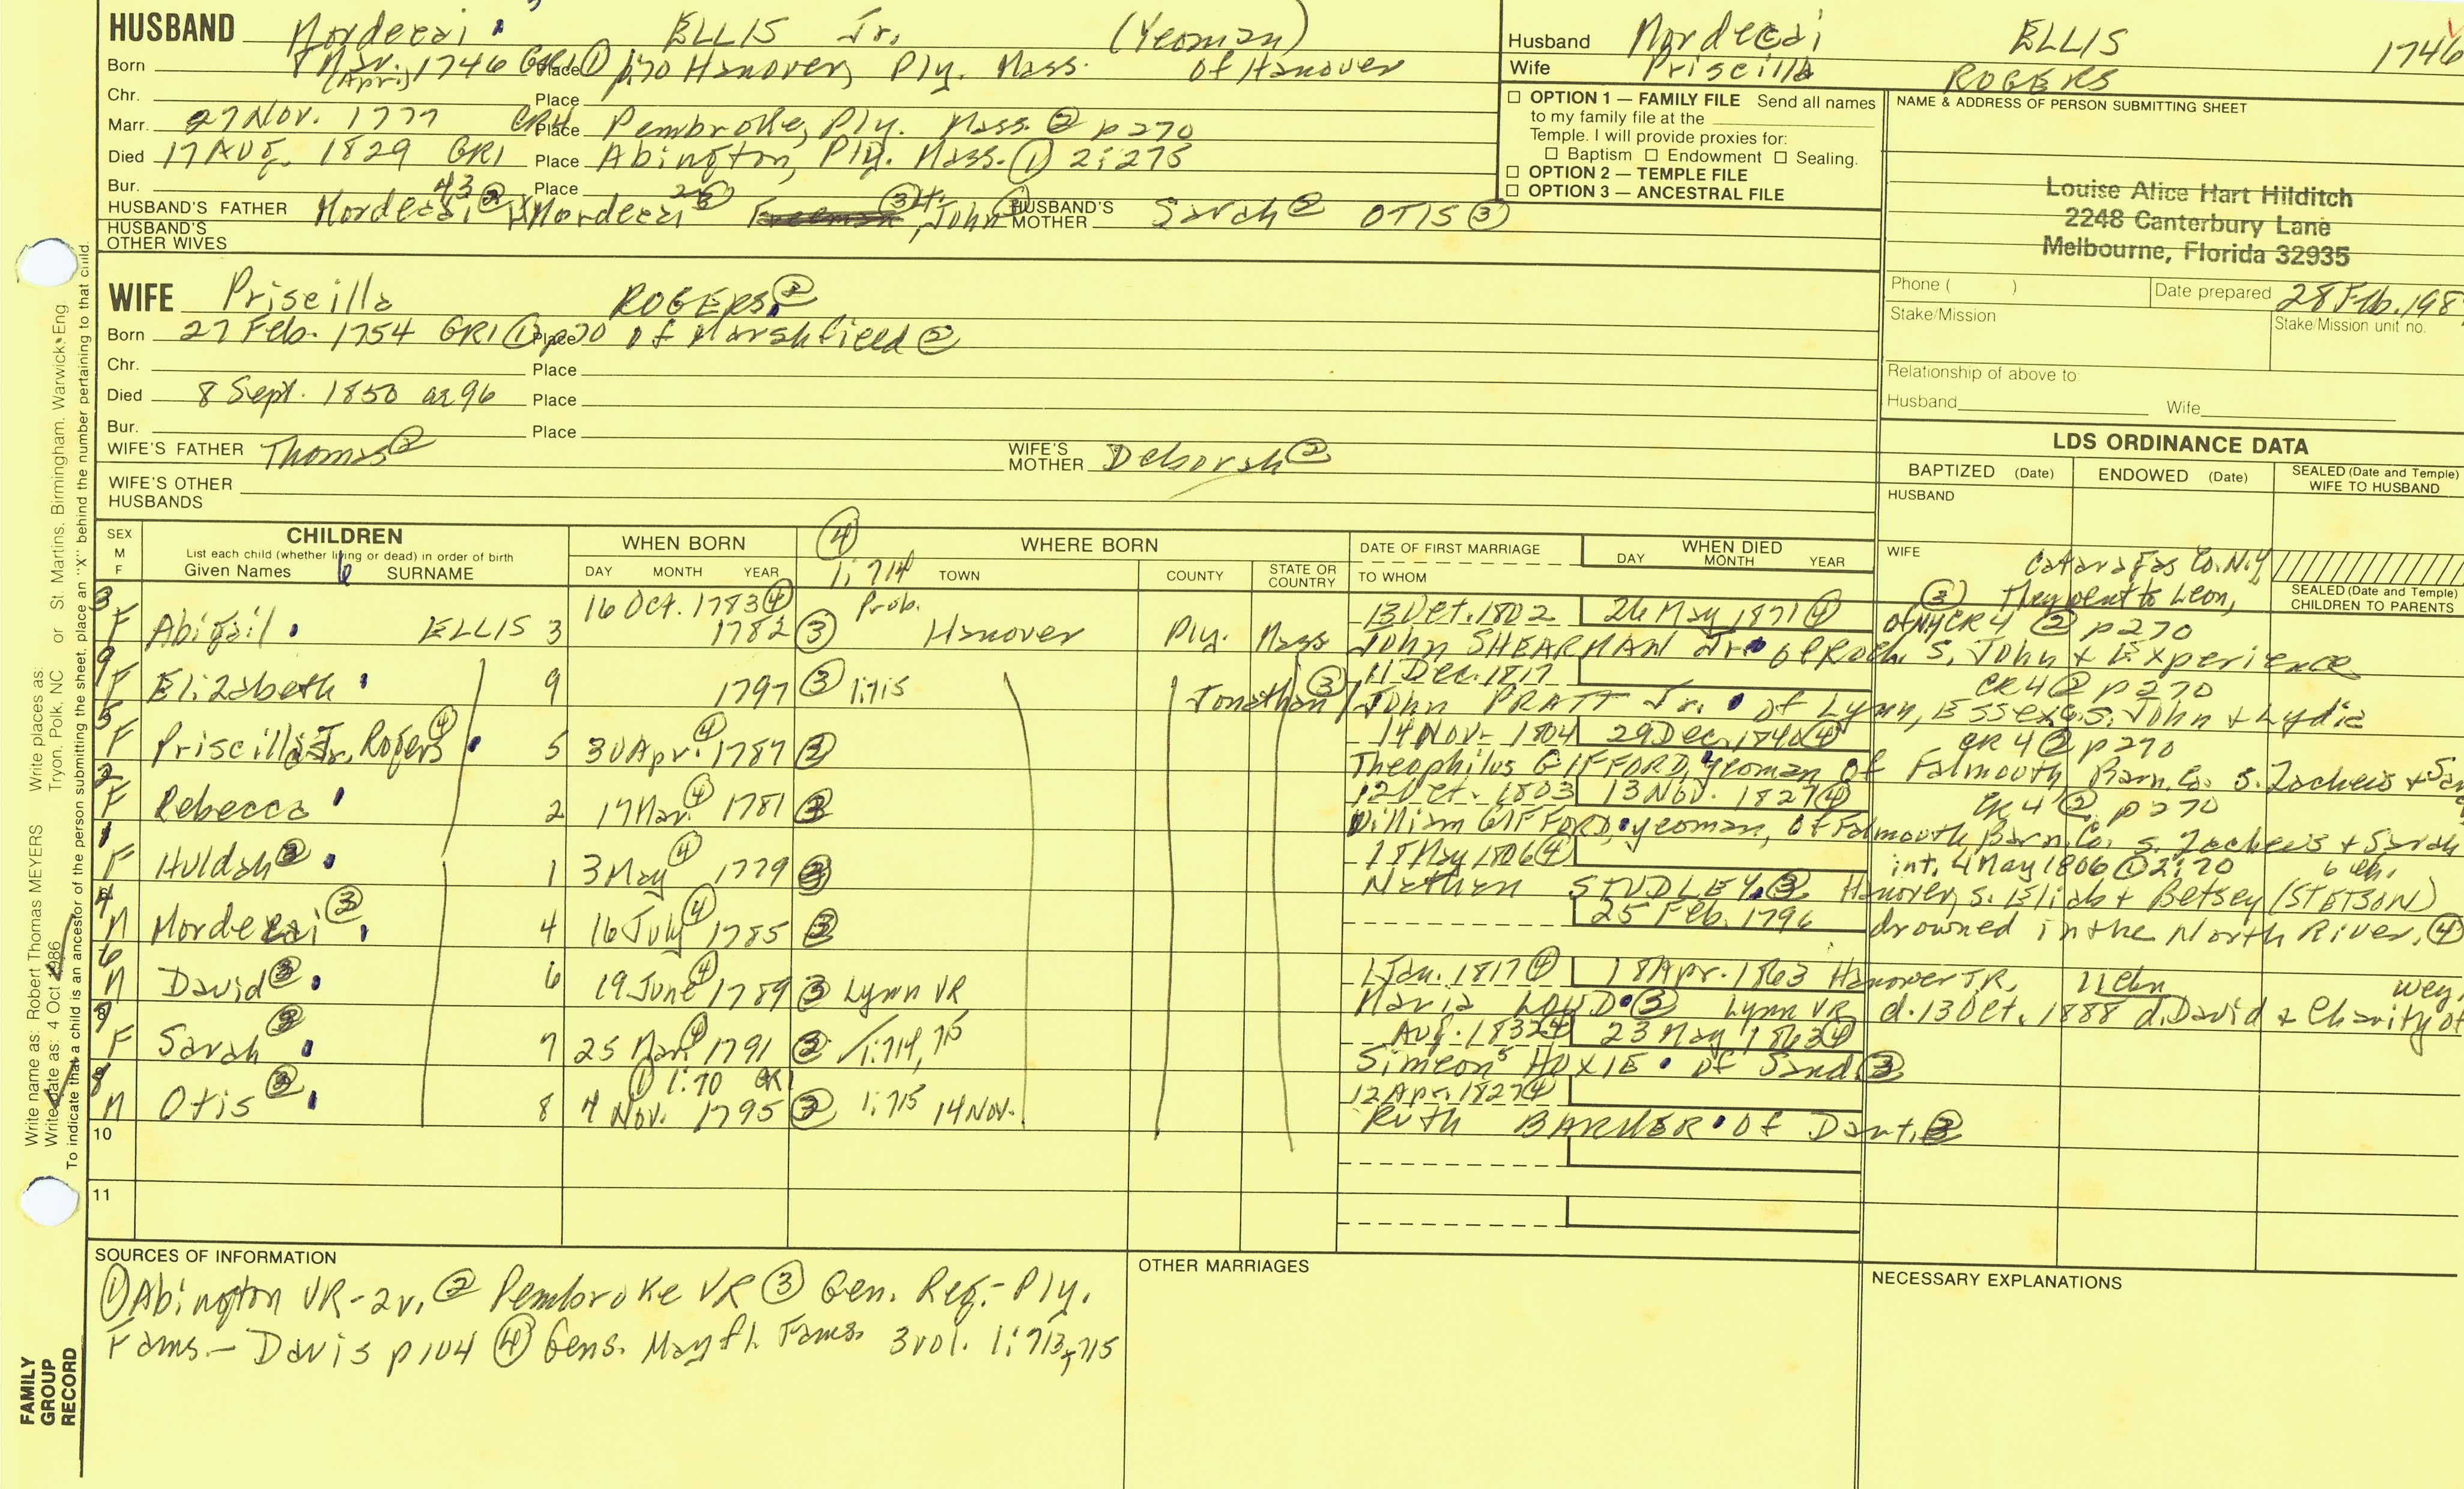 HUSBAND Mordecai ELLIS Jr. (Yeoman)
Born 8 Mar. 1746 GR1 Place ① p70 Hanover, Ply. Mass. of Hanover
(Apr.)
Chr. Place
Marr. 27 Nov. 1777 CR4 Place Pembroke, Ply. Mass. ② p270
Died 17 Aug. 1829 GR1 Place Abington, Ply. Mass. ① 2:275
Bur. Place
HUSBAND'S FATHER Mordecai Mordecai John HUSBAND'S MOTHER Sarah② OTIS③
HUSBAND'S OTHER WIVES
Husband Mordecai ELLIS 1746
Wife Priscilla ROGERS
☐ OPTION 1 — FAMILY FILE Send all names
to my family file at the
Temple. I will provide proxies for:
☐ Baptism ☐ Endowment ☐ Sealing.
☐ OPTION 2 — TEMPLE FILE
☐ OPTION 3 — ANCESTRAL FILE
NAME & ADDRESS OF PERSON SUBMITTING SHEET
Louise Alice Hart Hilditch
2248 Canterbury Lane
Melbourne, Florida 32935
Phone ( ) Date prepared 28 Feb. 198
Stake/Mission Stake/Mission unit no.
Relationship of above to:
Husband Wife
WIFE Priscilla ROGERS②
Born 27 Feb. 1754 GR1 ① p70 Place of Marshfield②
Chr. Place
Died 8 Sept. 1850 ae 96 Place
Bur. Place
WIFE'S FATHER Thomas② WIFE'S MOTHER Deborah②
WIFE'S OTHER
HUSBANDS
LDS ORDINANCE DATA
BAPTIZED (Date) ENDOWED (Date) SEALED (Date and Temple)
WIFE TO HUSBAND
HUSBAND
WIFE
SEALED (Date and Temple)
CHILDREN TO PARENTS
SEX
M
F
CHILDREN
List each child (whether living or dead) in order of birth
Given Names SURNAME
WHEN BORN
DAY MONTH YEAR
④
1:714
WHERE BORN
TOWN COUNTY STATE OR COUNTRY
DATE OF FIRST MARRIAGE
TO WHOM
WHEN DIED
DAY MONTH YEAR
Cataraugas Co. N.Y.
③ They went to Leon,
3 16 Oct. 1783④ Prob. 13 Oct. 1802 26 May 1871④ of NY CR4 ② p270
F Abigail ELLIS 3 1782③ Hanover Ply. Mass John SHEARMAN Jr. of Roch. S. John & Experience
9 11 Dec. 1817 CR4② p270
F Elizabeth 9 1797③ 1:715 Jonathan③/John PRATT Jr. of Lynn, Essex, S. John & Lydia
5 14 Nov. 1804 29 Dec. 1840④ CR4② p270
F Priscilla Jr. Rogers④ 5 30 Apr.④ 1787③ Theophilus GIFFORD, yeoman of Falmouth Barn. Co. S. Zacheus &
2 12 Oct. 1803 13 Nov. 1827④ CR4② p270
F Rebecca 2 17 Mar.④ 1781③ William GIFFORD, yeoman, of Falmouth, Barn. Co. S. Zacheus & Sarah
1 18 May 1806④ int. 4 May 1806 ① 2:70 6 ch.
F Huldah③ 1 3 May④ 1779③ Nathan STUDLEY③ Hanover, S. Eliab & Betsey (STETSON)
4 25 Feb. 1796 drowned in the North River.④
M Mordecai③ 4 16 July④ 1785③
6 1 Jan. 1817④ 18 Apr. 1863 Hanover TR. 11 chn Wey.
M David③ 6 19 June④ 1789③ Lynn VR Maria LOUD③ Lynn VR d. 13 Oct. 1888 d. David & Charity of
Aug. 1832④ 23 May 1863④
F Sarah③ 7 25 Mar.④ 1791③ 1:714, 15 Simeon⁵ HOXIE of Sand.③
① 1:70 GR1 12 Apr. 1827④
M Otis③ 8 4 Nov. 1795③ 1:715 14 Nov. Ruth BARKER of Dart.③
10
11
SOURCES OF INFORMATION
① Abington VR-2v. ② Pembroke VR ③ Gen. Reg.- Ply.
Fams.- Davis p104 ④ Gens. Mayfl. Fams. 3vol. 1:713,715
OTHER MARRIAGES
NECESSARY EXPLANATIONS
Write name as: Robert Thomas MEYERS Write places as: Tryon, Polk, NC or St. Martins, Birmingham, Warwick, Eng
Write date as: 4 Oct 1986
To indicate that a child is an ancestor of the person submitting the sheet, place an "X" behind the number pertaining to that child.
FAMILY
GROUP
RECORD